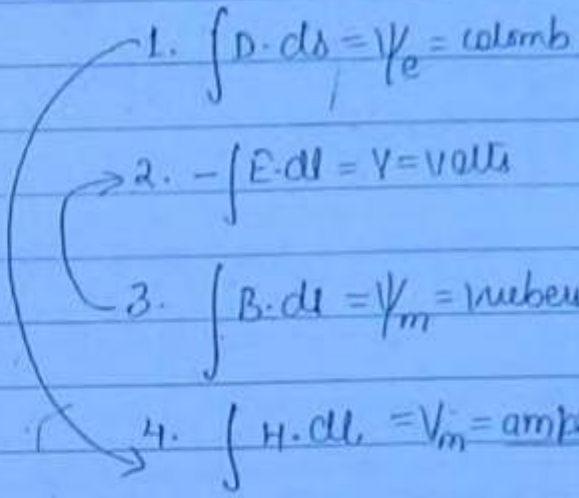 1. ∫ D·ds = ψe = colomb
2. - ∫ E·dl = V = volts
3. ∫ B·ds = ψm = weber
4. ∫ H·dl = Vm = amp